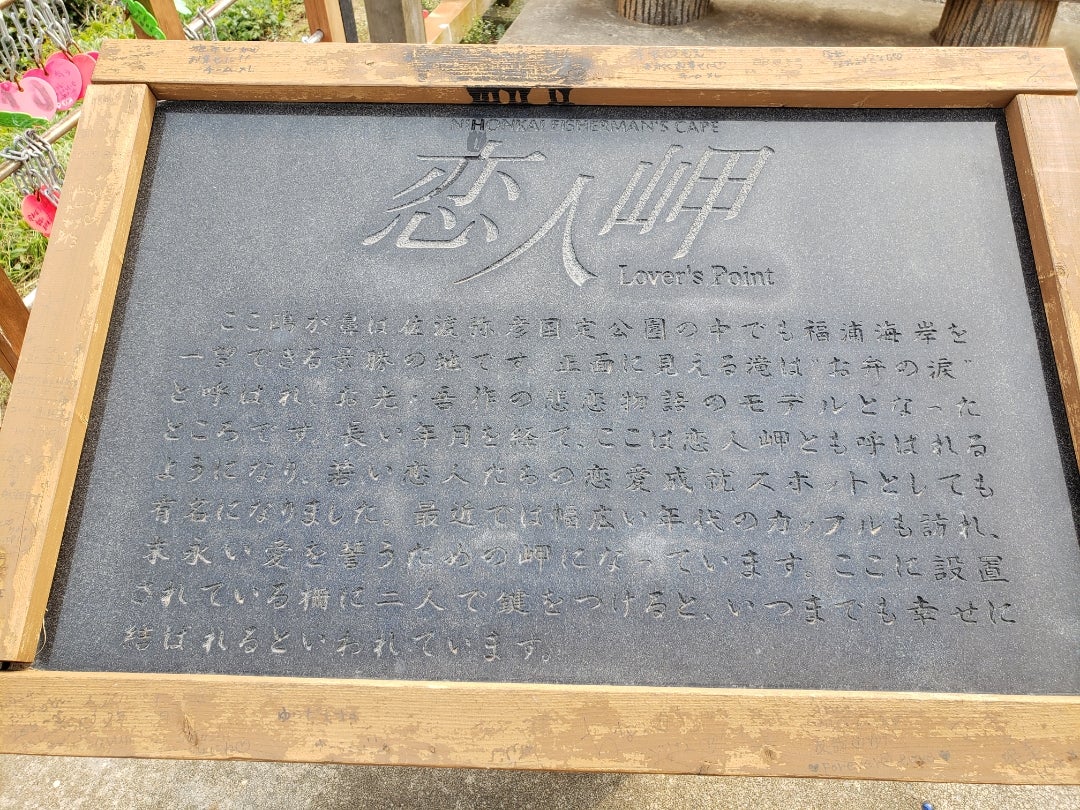 NIHONKAI FISHERMAN'S CAPE
恋人岬
Lover's Point
ここ鴎が鼻は佐渡弥彦国定公園の中でも福浦海岸を
一望できる景勝の地です。正面に見える滝は"お弁の涙"
と呼ばれ、お光・吾作の悲恋物語のモデルとなった
ところです。長い年月を経て、ここは恋人岬とも呼ばれる
ようになり、若い恋人たちの恋愛成就スポットとしても
有名になりました。最近では幅広い年代のカップルも訪れ、
末永い愛を誓うための岬になっています。ここに設置
されている柵に二人で鍵をつけると、いつまでも幸せに
結ばれるといわれています。